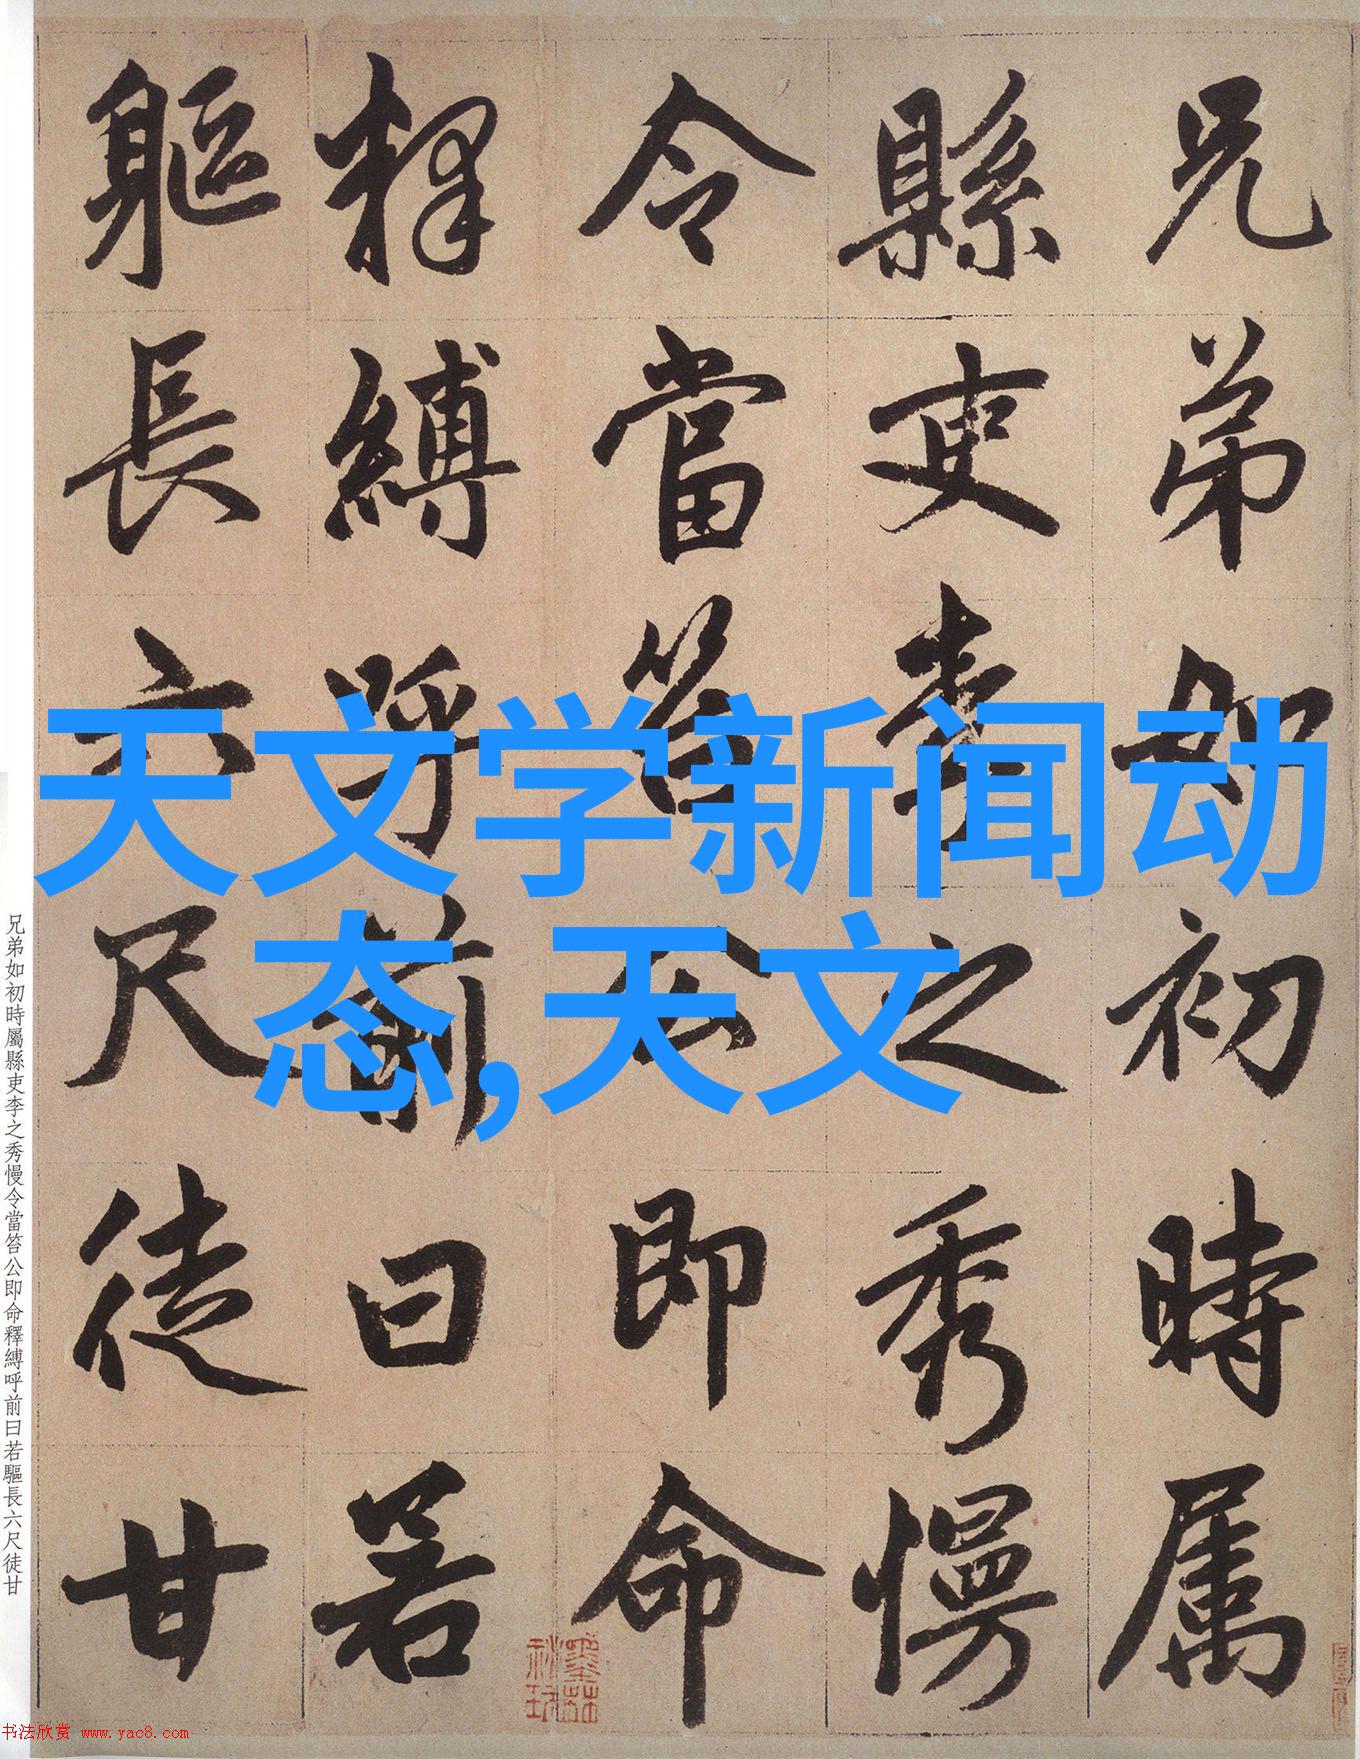 天文学新闻动
态,天文
兄弟如初時属
縣吏李之秀慢
令當笞公即命
釋縛呼前曰若
軀長六尺徒甘
兄弟如初時屬縣吏李之秀慢令當笞公即命釋縛呼前曰若驅長六尺徒甘
书法欣赏 www.yac8.com